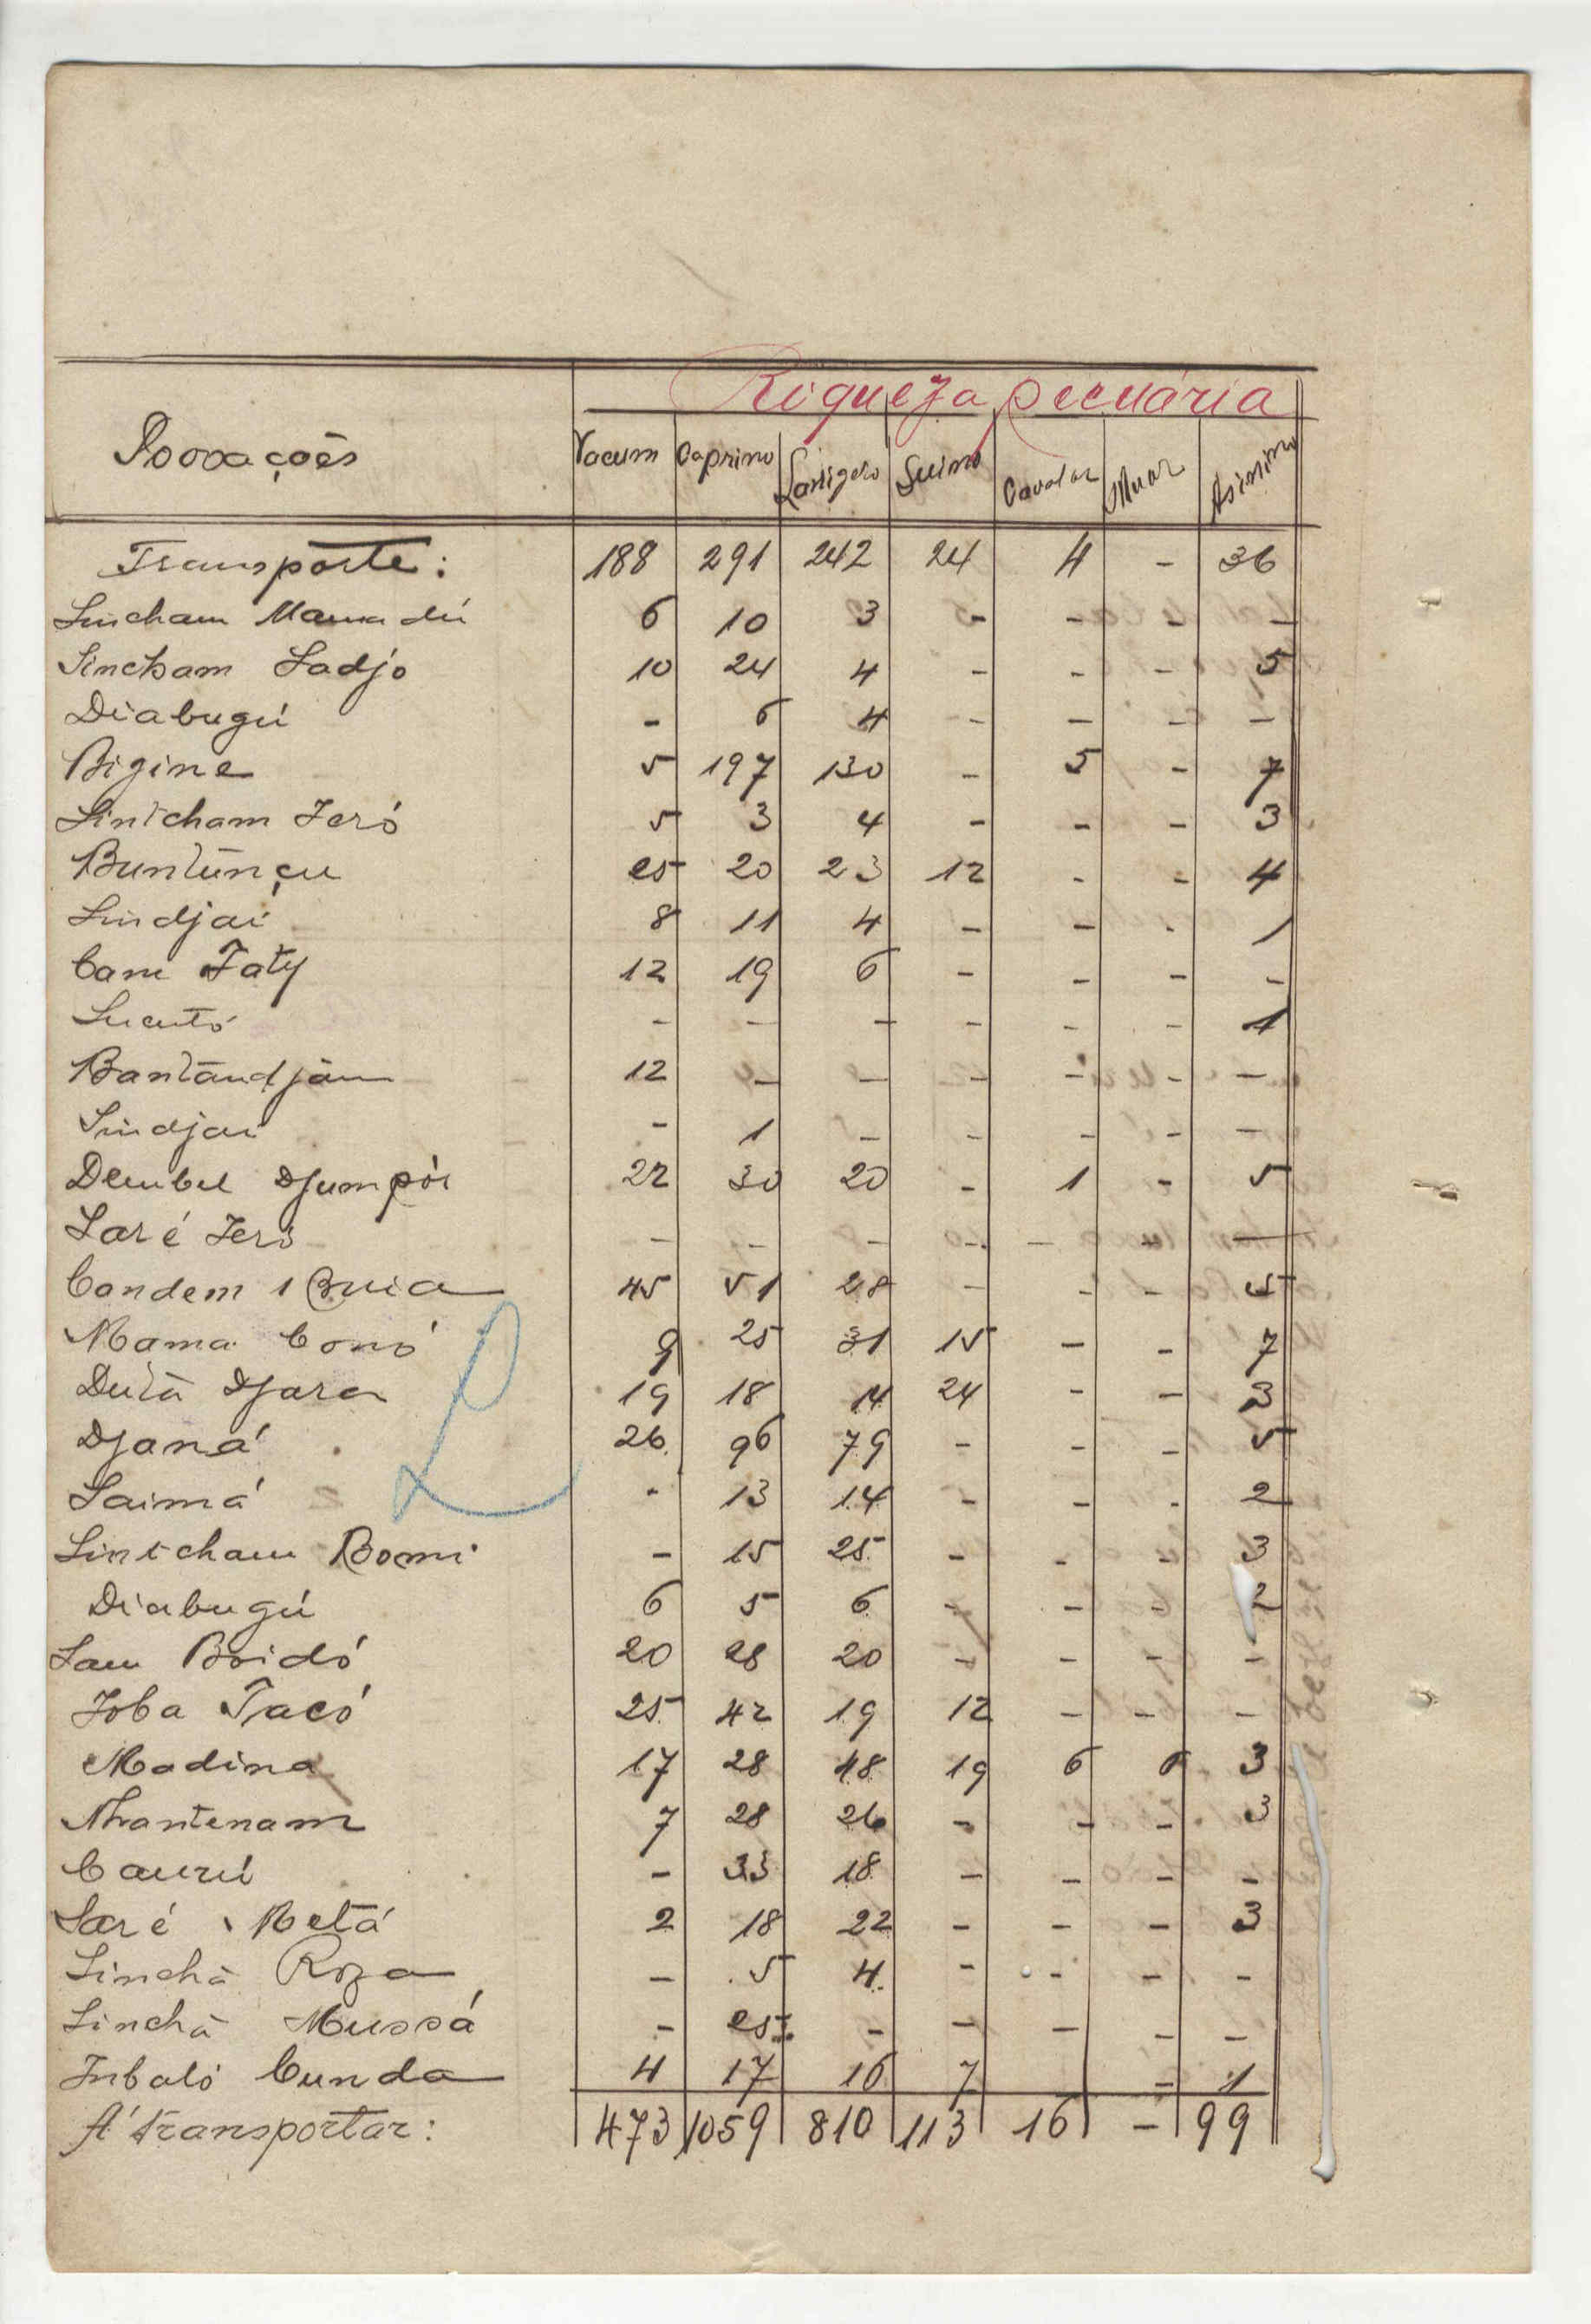 Riqueza pecuária
Povoações Vacum Caprino Lanigero Suino Cavalar Muar Asinino
Transporte: 188 291 242 24 4 - 36
Sincham Mamadú 6 10 3 - - - -
Sincham Sadjo 10 24 4 - - - 5
Diabugú - 6 4 - - - -
Bigine 5 197 130 - 5 - 7
Sintcham Ieró 5 3 4 - - - 3
Buntúnçu 25 20 23 12 - - 4
Sindjai 8 11 4 - - - 1
Cam Faty 12 19 6 - - - -
Sucutó - - - - - - 1
Bantãndjam 12 - - - - - -
Sindjai - 1 - - - - -
Dembel Djumpór 22 30 20 - 1 - 5
Saré Ieró - - - - - - -
Candem 45 51 28 - - - 5
Mama Conó 9 25 31 15 - - 7
Dutã Djara 19 18 14 24 - - 3
Djaná 26 96 79 - - - 5
Saimá - 13 14 - - - 2
Sintcham Bomi - 15 25 - - - 3
Diabugú 6 5 6 - - - 2
Sam Boidó 20 28 20 - - - -
Joba Tacó 25 42 19 12 - - -
Madina 17 28 48 19 6 3
Nhantenam 7 28 26 - - - 3
Caurú - 33 18 - - - -
Saré Betá 2 18 22 - - - 3
Sinchã Roza - 5 4 - - - -
Sinchã Mussá - 25 - - - - -
Inbaló Cunda 4 17 16 7 - 1
A' transportar: 473 1059 810 113 16 - 99